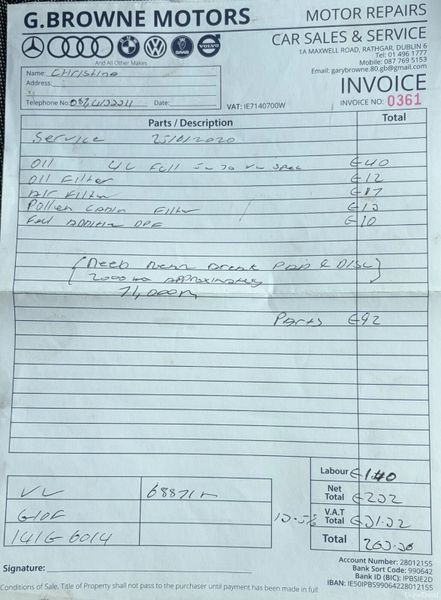 G.BROWNE MOTORS
MOTOR REPAIRS
CAR SALES & SERVICE
1A MAXWELL ROAD, RATHGAR, DUBLIN 6
Tel: 01 496 1777
Mobile: 087 769 5153
Email: garybrowne.80.gb@gmail.com
SAAB VOLVO
And All Other Makes
Name: Christine
Address:
Telephone No: Date:
VAT: IE7140700W
INVOICE
INVOICE NO: 0361
Parts / Description Total
Service 25/11/2020
Oil 4L Full 5w30 VW Spec €40
Oil Filter €12
Air Filter €17
Pollen Cabin Filter €13
Fuel Additive DPF €10
(Need New Break Pads & Disc)
2000 km Approximately
71,000km
Parts €92
Labour €140
VW 68871k
Net Total €232
GOLF 13.5%
V.A.T Total €31.32
141G 6014
Total 263.32
Account Number: 28012155
Bank Sort Code: 990642
Bank ID (BIC): IPBSIE2D
IBAN: IE50IPBS99064228012155
Signature:
Conditions of Sale, Title of Property shall not pass to the purchaser until payment has been made in full